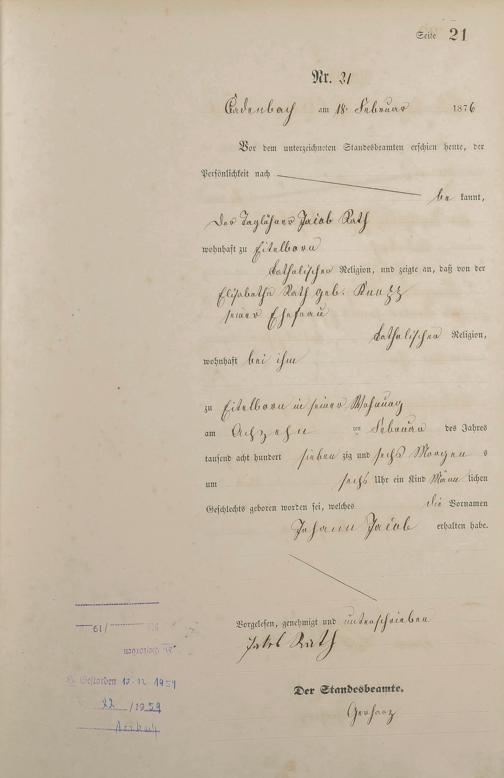 Seite 21
Nr. 21
Cadenbach am 18. Februar 1876
Vor dem unterzeichneten Standesbeamten erschien heute, der
Persönlichkeit nach
be kannt,
der Taglöhner Jacob Rath
wohnhaft zu Eitelborn
katholischer Religion, und zeigte an, daß von der
Elisabetha Rath geb.
seiner Ehefrau
katholischer Religion,
wohnhaft bei ihm
zu Eitelborn in seiner Wohnung
am Achzehn ten Februar des Jahres
tausend acht hundert sieben zig und sechs Morgen s
um sechs Uhr ein Kind Männ lichen
Geschlechts geboren worden sei, welches die Vornamen
Johann Jacob erhalten habe.
Vorgelesen, genehmigt und unterschrieben
Jakob Rath
Der Standesbeamte.
Gerharz
19/
Gestorben 12.12 1959
22 /1959